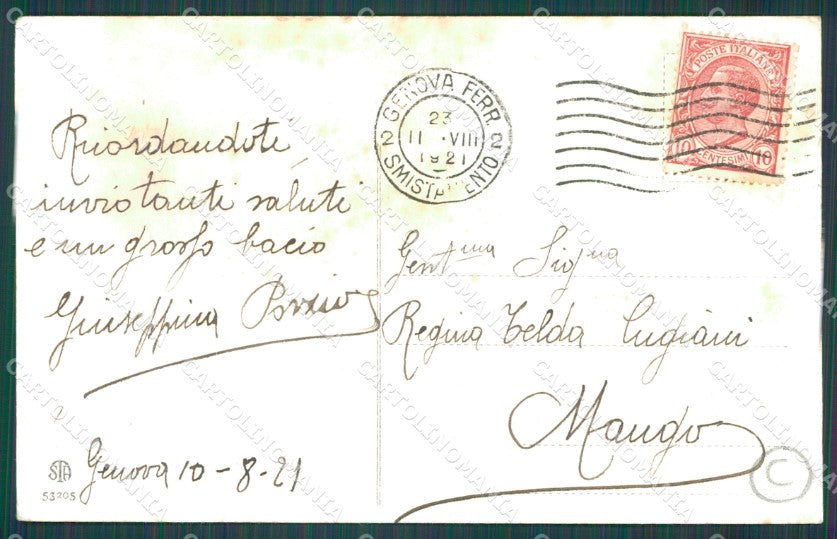 Ricordandote,
invio tanti saluti
e un grosso bacio
Giuseppina
Genova 10-8-21
STA
53205
GENOVA FERR.
2 2
23
11 · VIII
1921
SMISTAMENTO
POSTE ITALIANE
10 CENTESIMI 10
Gent.ma Sig.na
Regina Telda Lugiani
Mango
C
CARTOLINOMANIA